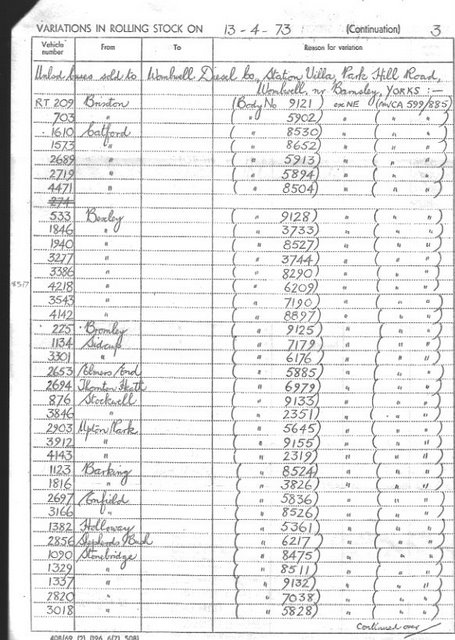 VARIATIONS IN ROLLING STOCK ON 13-4-73 (Continuation) 3
Vehicle number From To Reason for variation
Unlcd buses sold to Wombwell Diesel Co, Station Villa, Park Hill Road,
Wombwell, nr Barnsley, YORKS :—
RT 209 Brixton (Body No 9121) ex NE (m/CA 599/885)
703 " ( " 5902) " ( " " )
1610 Catford ( " 8530) " ( " " )
1573 " ( " 8652) " ( " " )
2689 " ( " 5913) " ( " " )
2719 " ( " 5894) " ( " " )
4471 " ( " 8504) " ( " " )
274
533 Bexley ( " 9128) " ( " " )
1846 " ( " 3733) " ( " " )
1940 " ( " 8527) " ( " " )
3277 " ( " 3744) " ( " " )
3386 " ( " 8290) " ( " " )
4218 " ( " 6209) " ( " " )
3543 " ( " 7190) " ( " " )
4142 " ( " 8897) " ( " " )
225 Bromley ( " 9125) " ( " " )
1134 Sidcup ( " 7179) " ( " " )
3301 " ( " 6176) " ( " " )
2653 Elmers End ( " 5885) " ( " " )
2694 Thornton Heath ( " 6979) " ( " " )
876 Stockwell ( " 9133) " ( " " )
3846 " ( " 2351) " ( " " )
2903 Upton Park ( " 5645) " ( " " )
3912 " ( " 9155) " ( " " )
4143 " ( " 2319) " ( " " )
1123 Barking ( " 8524) " ( " " )
1816 " ( " 3826) " ( " " )
2697 Enfield ( " 5836) " ( " " )
3166 " ( " 8526) " ( " " )
1382 Holloway ( " 5361) " ( " " )
2856 Shepherds Bush ( " 6217) " ( " " )
1090 Stonebridge ( " 8475) " ( " " )
1329 " ( " 8511) " ( " " )
1337 " ( " 9132) " ( " " )
2820 " ( " 7038) " ( " " )
3018 " ( " 5828) " ( " " )
Continued over